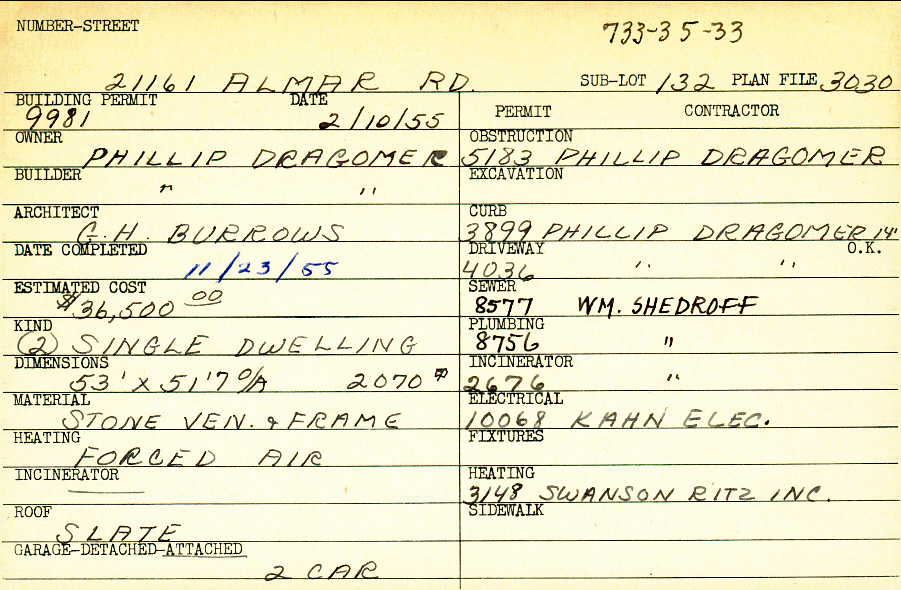 NUMBER-STREET
733-35-33
21161 ALMAR RD. SUB-LOT 132 PLAN FILE 3030
BUILDING PERMIT DATE PERMIT CONTRACTOR
9981 2/10/55
OWNER OBSTRUCTION
PHILLIP DRAGOMER 5183 PHILLIP DRAGOMER
BUILDER EXCAVATION
" "
ARCHITECT CURB
G.H. BURROWS 3899 PHILLIP DRAGOMER 14'
DATE COMPLETED DRIVEWAY O.K.
11/23/55 4036 " "
ESTIMATED COST SEWER
$36,500 00 8577 WM. SHEDROFF
KIND PLUMBING
(2) SINGLE DWELLING 8756 "
DIMENSIONS INCINERATOR
53' X 51'7 O/A 2070 2676 "
MATERIAL ELECTRICAL
STONE VEN. & FRAME 10068 KAHN ELEC.
HEATING FIXTURES
FORCED AIR
INCINERATOR HEATING
3148 SWANSON RITZ INC.
ROOF SIDEWALK
SLATE
GARAGE-DETACHED-ATTACHED
2 CAR